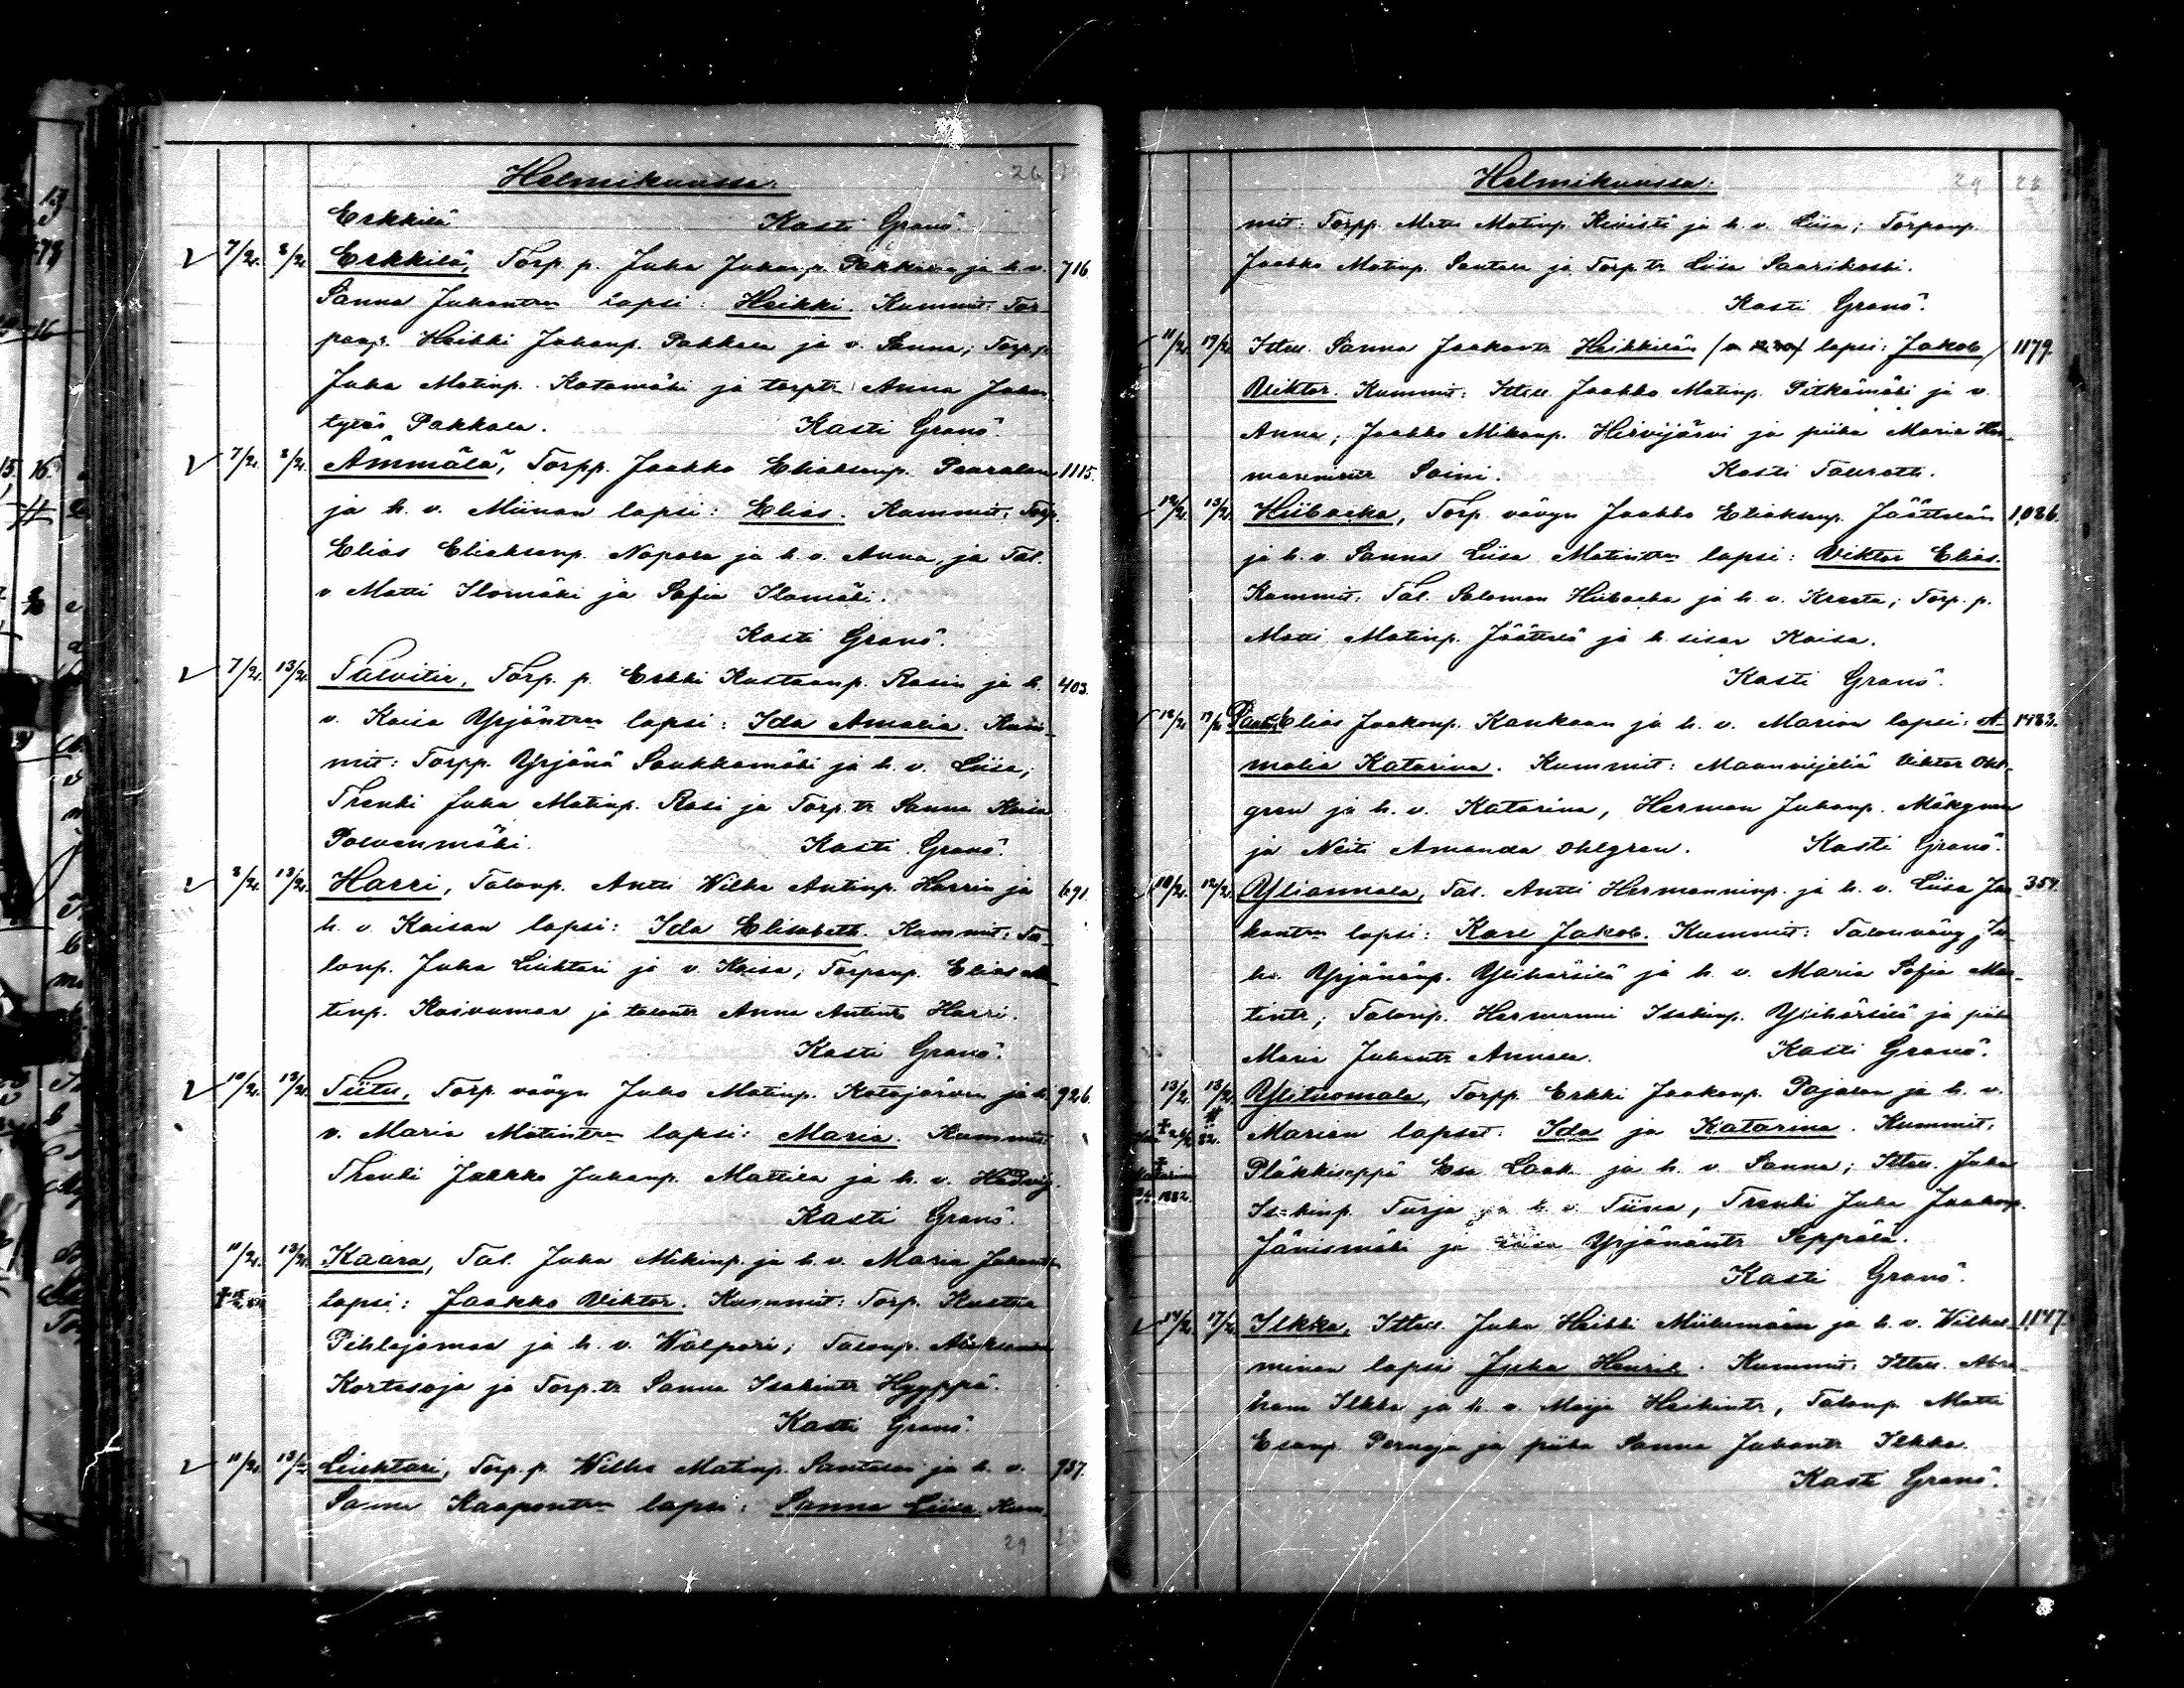 Helmikuussa.
Erkkilä Kasti Granö.
7/2. 8/2. Erkkilä, Torp. p. Juha Juhanp. Pakkalan ja h. v. 716.
Sanna Juhantrn lapsi: Heikki. Kummit: Tor-
panp. Heikki Juhanp. Pakkala ja v. Sanna; Torp. p.
Juha Matinp. Katamäki ja torptr Anna Juhan
tytär Pakkala. Kasti Granö.
7/2. 8/2. Ämmälä, Torpp. Jaakko Eliaksenp. Peuralan 1115.
ja h. v. Miinan lapsi: Elias. Kummit: Torp.
Elias Eliaksenp. Napola ja h. v. Anna, ja Tal.
v. Matti Ilomäki ja Sofia Ilomäki.
Kasti Granö.
7/2. 13/2. Talvitie, Torp. p. Erkki Kustaanp. Rasin ja h. 403.
v. Kaisa Yrjäntrn lapsi: Ida Amalia. Kum-
mit: Torpp. Yrjänä Saukkomäki ja h. v. Liisa;
Trenki Juha Matinp. Rasi ja Torp. tr Sanna Kaisa
Polvenmäki. Kasti Granö.
8/2. 13/2. Harri, Talonp. Antti Wilhe Antinp. Harrin ja 691.
h. v. Kaisan lapsi: Ida Elisabeth. Kummit: Ta-
lonp. Juha Liuhtari ja v. Kaisa; Torpanp. Elias Ma-
tinp. Koivumaa ja talontr Anna Antintr Harri.
Kasti Granö.
10/2. 13/2. Tiitu, Torp. vävyn Juho Matinp. Katajärven ja h. 926.
v. Maria Matintrn lapsi: Maria. Kummit:
Trenki Jaakko Juhanp. Mattila ja h. v. Hedvig.
Kasti Granö.
11/2. 13/2. Kaara, Tal. Juha Mikinp. ja h. v. Maria Juhantr
lapsi: Jaakko Viktor. Kummit: Torp. Kustaa
Pihlajamaa ja h. v. Walpori; Talonp. Aleksander
Kortesoja ja Torp. tr Sanna Isakintr Hyyppä.
Kasti Granö.
11/2. 13/2. Liuhtari, Torp. p. Wilhe Matinp. Santalan ja h. v. 937.
Sanna Kaapontrn lapsi: Sanna Liisa. Kum-
29
Helmikuussa.
29
mit: Torpp. Matti Matinp. Kivistö ja h. v. Liisa; Torpanp.
Jaakko Matinp. Santala ja Torp. tr Liisa Saarikoski.
Kasti Granö.
11/2. 19/2. Itsell. Sanna Jaakontr Heikkilän lapsi: Jakob 1179.
Viktor. Kummit: Itsell. Jaakko Matinp. Pitkämäki ja v.
Anna; Jaakko Mikonp. Hirvijärvi ja piika Maria Her-
mannintr Soini. Kasti Taurath.
12/2. 13/2. Hiibacka, Torp. vävyn Jaakko Eliaksenp. Jäättelän 1086.
ja h. v. Sanna Liisa Matintrn lapsi: Viktor Elias.
Kummit: Tal. Salomon Hiibacka ja h. v. Kreeta; Torp. p.
Matti Matinp. Jäättelä ja h. sisar Kaisa.
Kasti Granö.
12/2. 19/2. Elias Jaakonp. Kankaan ja h. v. Marian lapsi: A- 1483.
malia Katarina. Kummit: Maanviljeliä Viktor Ohl-
gren ja h. v. Katarina, Herman Juhanp. Mäkynen
ja Neiti Amanda Ohlgren. Kasti Granö.
10/2. 12/2. Yliannala, Tal. Antti Hermanninp. ja h. v. Liisa Jaa- 354.
kontrn lapsi: Karl Jakob. Kummit: Talonvävy Ju-
ha Yrjänänp. Ylihärsilä ja h. v. Maria Sofia Ma-
tintr; Talonp. Hermanni Isakinp. Ylihärsilä ja piika
Maria Juhantr Annala. Kasti Granö.
13/2. 13/2. Ylituomala, Torpp. Erkki Jaakonp. Pajalan ja h. v.
Marian lapset: Ida ja Katarina. Kummit:
Pläkkiseppä Esa Laak ja h. v. Sanna; Itsell. Juha
Isakinp. Turja ja h. v. Tiina, Trenki Juha Jaakonp.
Jänismäki ja Liisa Yrjänäntr Seppälä.
Kasti Granö.
14/2. 17/2. Ilkka, Itsell. Juha Heikki Miilumäen ja h. v. Wilhel- 1147.
minan lapsi Juha Henrik. Kummit: Itsell. Abra-
ham Ilkka ja h. v. Maija Heikintr, Talonp. Matti
Esanp. Pernaja ja piika Sanna Juhontr Ilkka.
Kasti Granö.